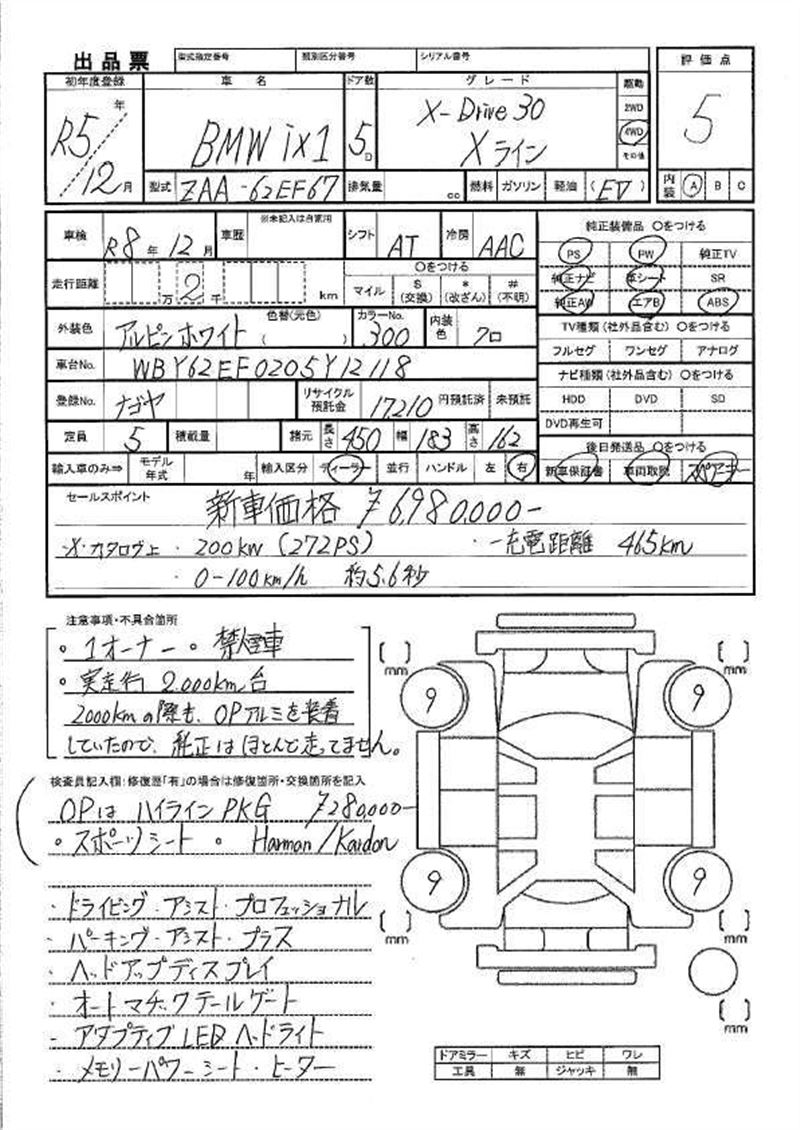 出品票 型式指定番号 類別区分番号 シリアル番号 評価点
初年度登録 車名 ドア数 グレード 駆動
R5年/12月 BMW ix1 5D X-Drive30 Xライン 2WD 4WD その他 5
型式 ZAA-62EF67 排気量 cc 燃料 ガソリン 軽油 (EV) 内装 A B C
車検 R8年12月 車歴 ※未記入は自家用 シフト AT 冷房 AAC 純正装備品 〇をつける
PS PW 純正TV
走行距離 万 2 千 km 〇をつける 純正ナビ 革シート SR
マイル $(交換) *(改ざん) #(不明) 純正AW エアB ABS
外装色 アルピンホワイト 色替(元色) ( ) カラーNo. 300 内装色 クロ TV種類(社外品含む) 〇をつける
フルセグ ワンセグ アナログ
車台No. WBY62EF0205Y12118 ナビ種類(社外品含む) 〇をつける
登録No. ナゴヤ リサイクル預託金 17210 円預託済 未預託 HDD DVD SD
DVD再生可
定員 5 積載量 諸元 長さ 450 幅 183 高さ 162 後日発送品 〇をつける
輸入車のみ⇒ モデル年式 年 輸入区分 ディーラー 並行 ハンドル 左 右 新車保証書 車両取説 スペアキー
セールスポイント 新車価格 ¥6,980,000-
・X・カタログ上 ・200kw (272PS) ・一充電距離 465km
・0-100km/h 約5.6秒
注意事項・不具合箇所
。1オーナー 。禁煙車
。実走行 2,000km台
2000kmの際も、OPアルミを装着
していたので、純正はほとんど走ってません。
検査員記入欄:修復歴「有」の場合は修復箇所・交換箇所を記入
OPは ハイラインPKG ¥280,000-
。スポーツシート 。Harman/Kardon
・ドライビング・アシスト・プロフェッショナル
・パーキング・アシスト・プラス
・ヘッドアップディスプレイ
・オートマチックテールゲート
・アダプティブLEDヘッドライト
・メモリーパワーシート・ヒーター
[ ] mm [ ] mm
9 9
9 9
[ ] mm [ ] mm
[ ] mm
ドアミラー キズ ヒビ ワレ
工具 無 ジャッキ 無